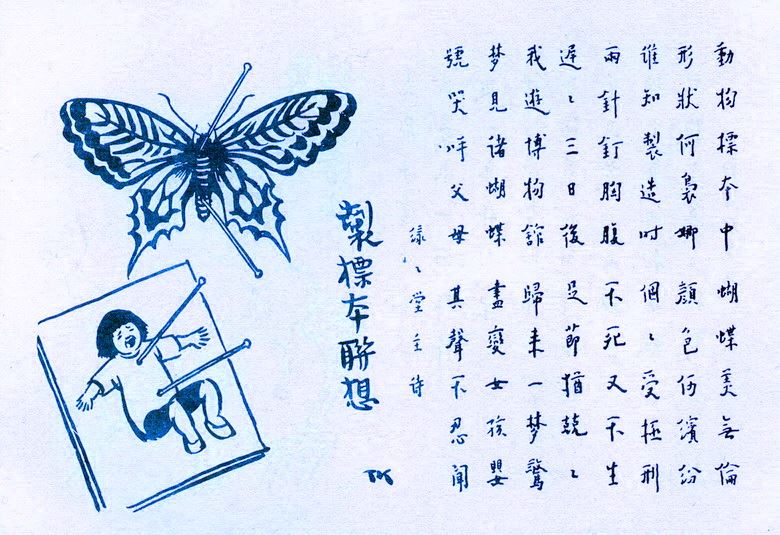 動物標本中蝴蝶美無倫
形狀何裊娜顏色繽紛
誰知製造时個〻受極刑
兩針釘胸腹不死又不生
遲〻三日後足節猶兢〻
我遊博物館歸来一梦驚
梦見诸蝴蝶盡變女孩嬰
號哭呼父母其聲不忍聞
緣〻堂主诗
製標本聯想
TK